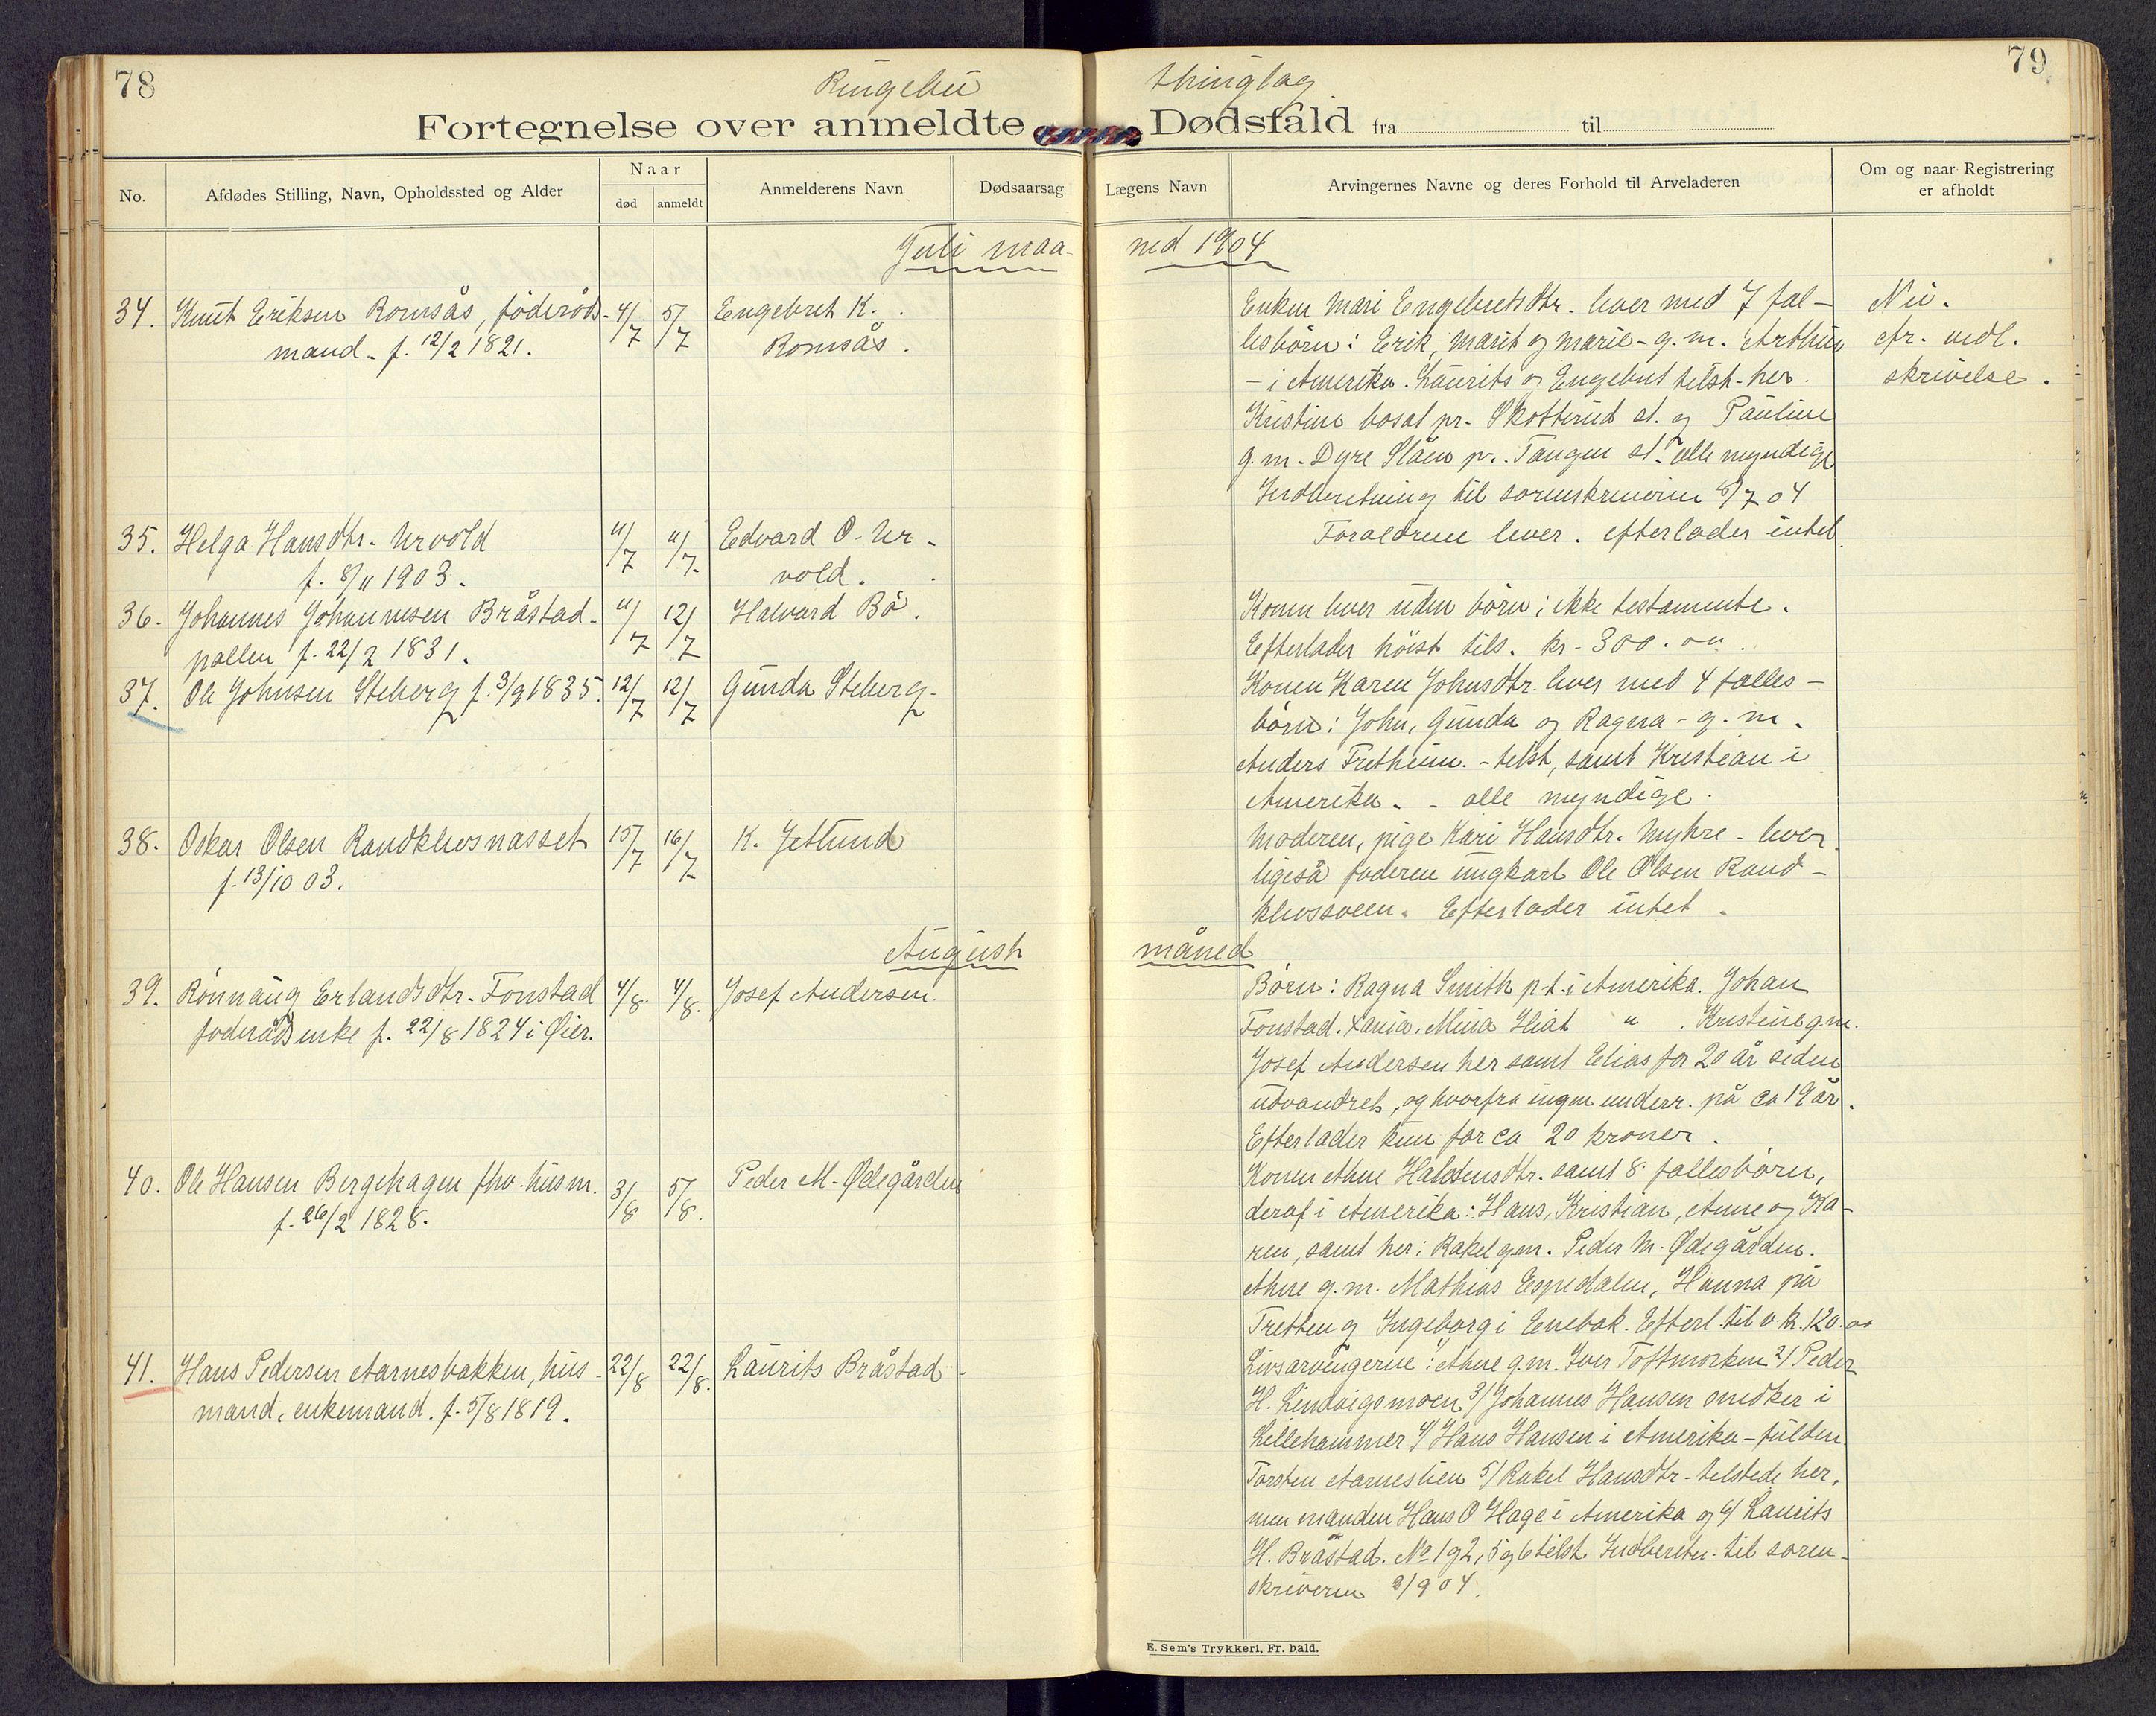 78
79
Ringebu thinglag
Fortegnelse over anmeldte Dødsfald fra til
No.
Afdødes Stilling, Navn, Opholdssted og Alder
Naar
død
anmeldt
Anmelderens Navn
Dødsaarsag
Lægens Navn
Arvingernes Navne og deres Forhold til Arveladeren
Om og naar Registrering
er afholdt
Juli maaned 1904
34. Knut Eriksen Romsås, föderåds- 4/7 5/7 Engebret K.
mand. f. 12/2 1821. Romsås.
Enken Mari Engebretsdtr. lever med 7 fæl-
lesbörn: Erik, Marit og Marie - g. m. Arthur
- i Amerika. Laurits og Engebret telst. her.
Kristine bosat pr. Skotterud st. og Pauline
g. m. Dyre Slåen pr. Tangen st. alle myndige
Indberetning til sorenskriveren 6/7 04
Nei.
cfr. vedl.
skrivelse.
35. Helga Hansdtr. Urvold 11/7 11/7 Edvard O. Ur-
f. 8/11 1903. vold.
Forældrene lever. efterlader intet
36. Johannes Johannesen Bråstad- 11/7 12/7 Halvard Bö.
pallen f. 22/2 1831.
Konen lever uden börn; ikke testamente.
Efterlader höist tils. kr. 300.00.
37. Ole Johnsen Steberg f. 3/9 1835. 12/7 12/7 Gunda Steberg
Konen Karen Johnsdtr. lever med 4 fælles-
börn: John, Gunda og Ragna - g. m.
Anders Fretheim. - telst, samt Kristian i
Amerika. - alle myndige.
38. Oskar Olsen Randklevsnasset 15/7 16/7 K. Jetlund
f. 13/10 03.
Moderen, pige Kari Hansdtr. Myhre - lever
ligeså faderen ungkarl Ole Olsen Rand-
klevsveen. Efterlader intet.
August måned
39. Rönnaug Erlandsdtr. Fonstad 4/8 4/8. Josef Andersen.
föderådsenke f. 22/8 1824 i Øier.
Börn: Ragna Smith p. t. i Amerika. Johan
Fonstad. Xania. Mina Hiat " . Kristine g m.
Josef Andersen her samt Elias for 20 år siden
udvandret, og hvorfra ingen underr. på ca 19 år.
Efterlader kun for ca 20 kroner.
40. Ole Hansen Bergehagen fhv. husm. 3/8 5/8. Peder M. Ødegården
f. 26/2 1828.
Konen Anne Halstensdtr. samt 8 fællesbörn,
deraf i Amerika: Hans, Kristian, Anne og Ka-
ren, samt her: Rakel gm. Peder M. Ødegården.
Anne g. m. Mathias Espedalen, Hanna på
Tretten og Ingeborg i Enebak. Efterl. til v. kr. 120.00
41. Hans Pedersen Aarnesbakken, hus- 22/8 22/8. Laurits Bråstad
mand, enkemand. f. 5/8 1819.
Livsarvingerne: Anne g. m. Iver Toftmorken 2/ Peder
H. Lindvigsmoen 3/ Johannes Hansen snedker i
Lillehammer 4/ Hans Hansen i Amerika - fuldm.
Torsten Aarneslien 5/ Rakel Hansdtr. - telstede her,
men manden Hans O Hage i Amerika og 6/ Laurits
H. Bråstad. No 1 og 2, 5 og 6 telst. Indberetn. til soren-
skriveren 3/9 04.
E. Sem's Trykkeri, Fr. hald.